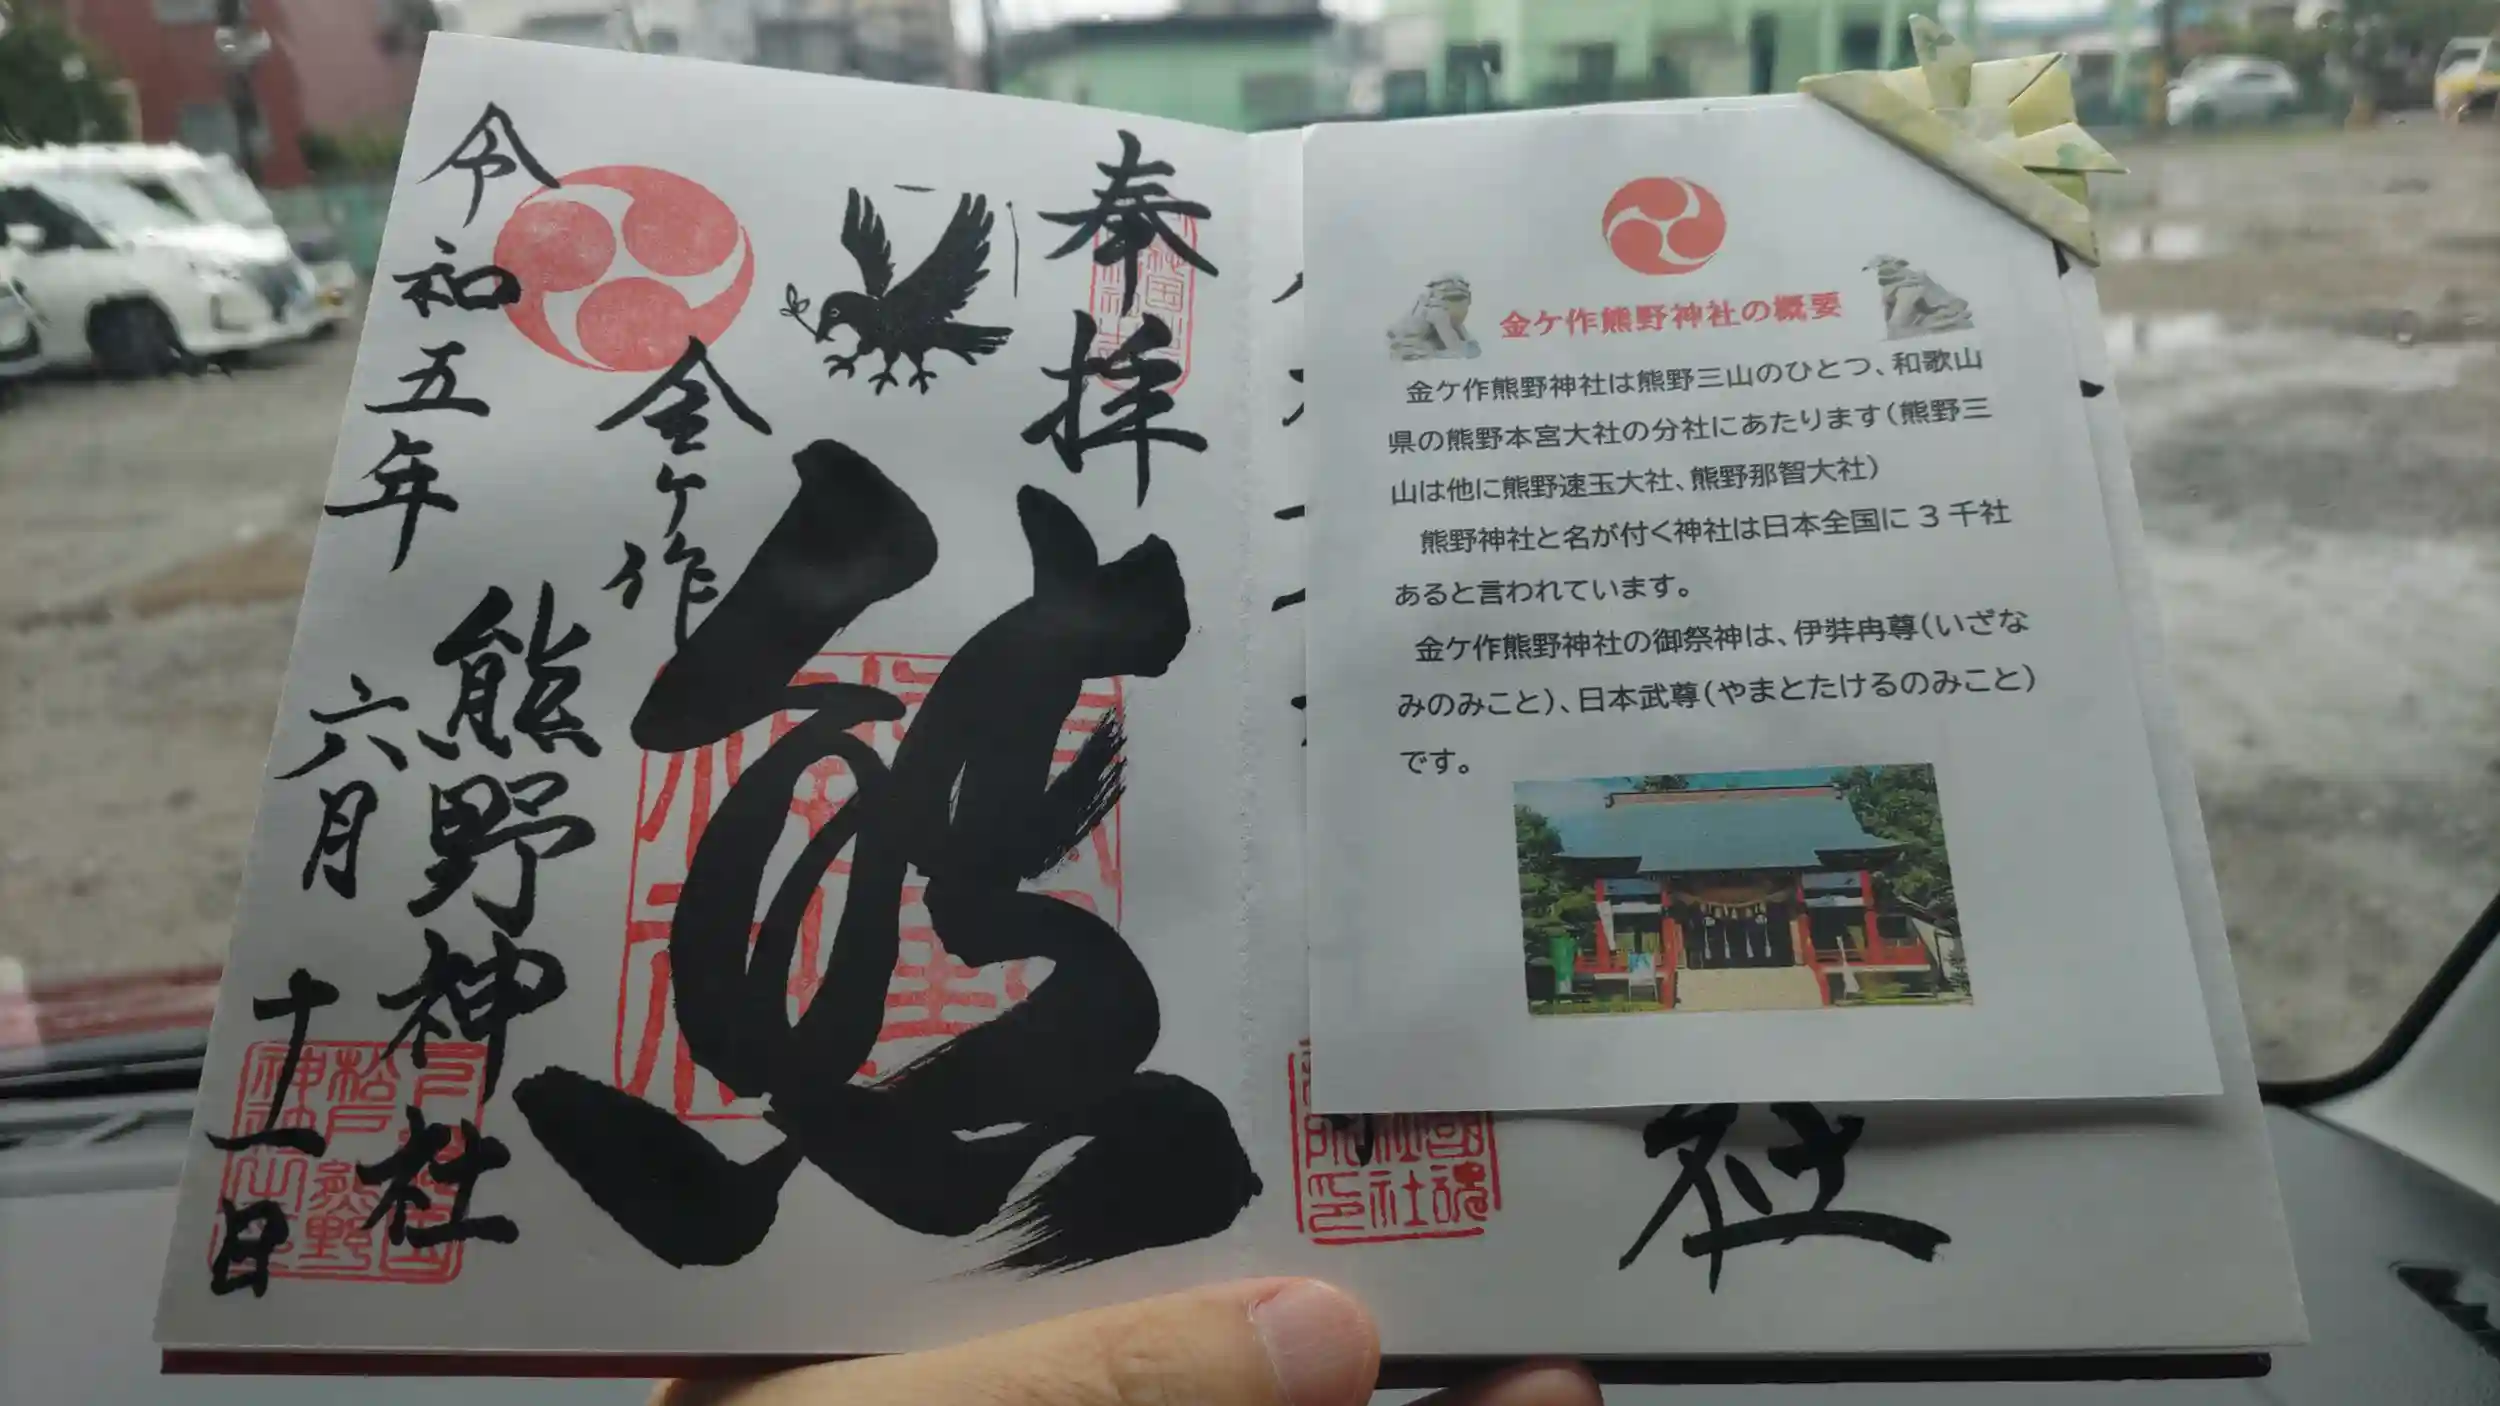 奉拝
熊
金ケ作
熊野神社
令和五年 六月 十一日
松戸
熊野
金ケ作熊野神社の概要
金ケ作熊野神社は熊野三山のひとつ、和歌山
県の熊野本宮大社の分社にあたります(熊野三
山は他に熊野速玉大社、熊野那智大社)
熊野神社と名が付く神社は日本全国に3千社
あると言われています。
金ケ作熊野神社の御祭神は、伊弉冉尊(いざな
みのみこと)、日本武尊(やまとたけるのみこと)
です。
社